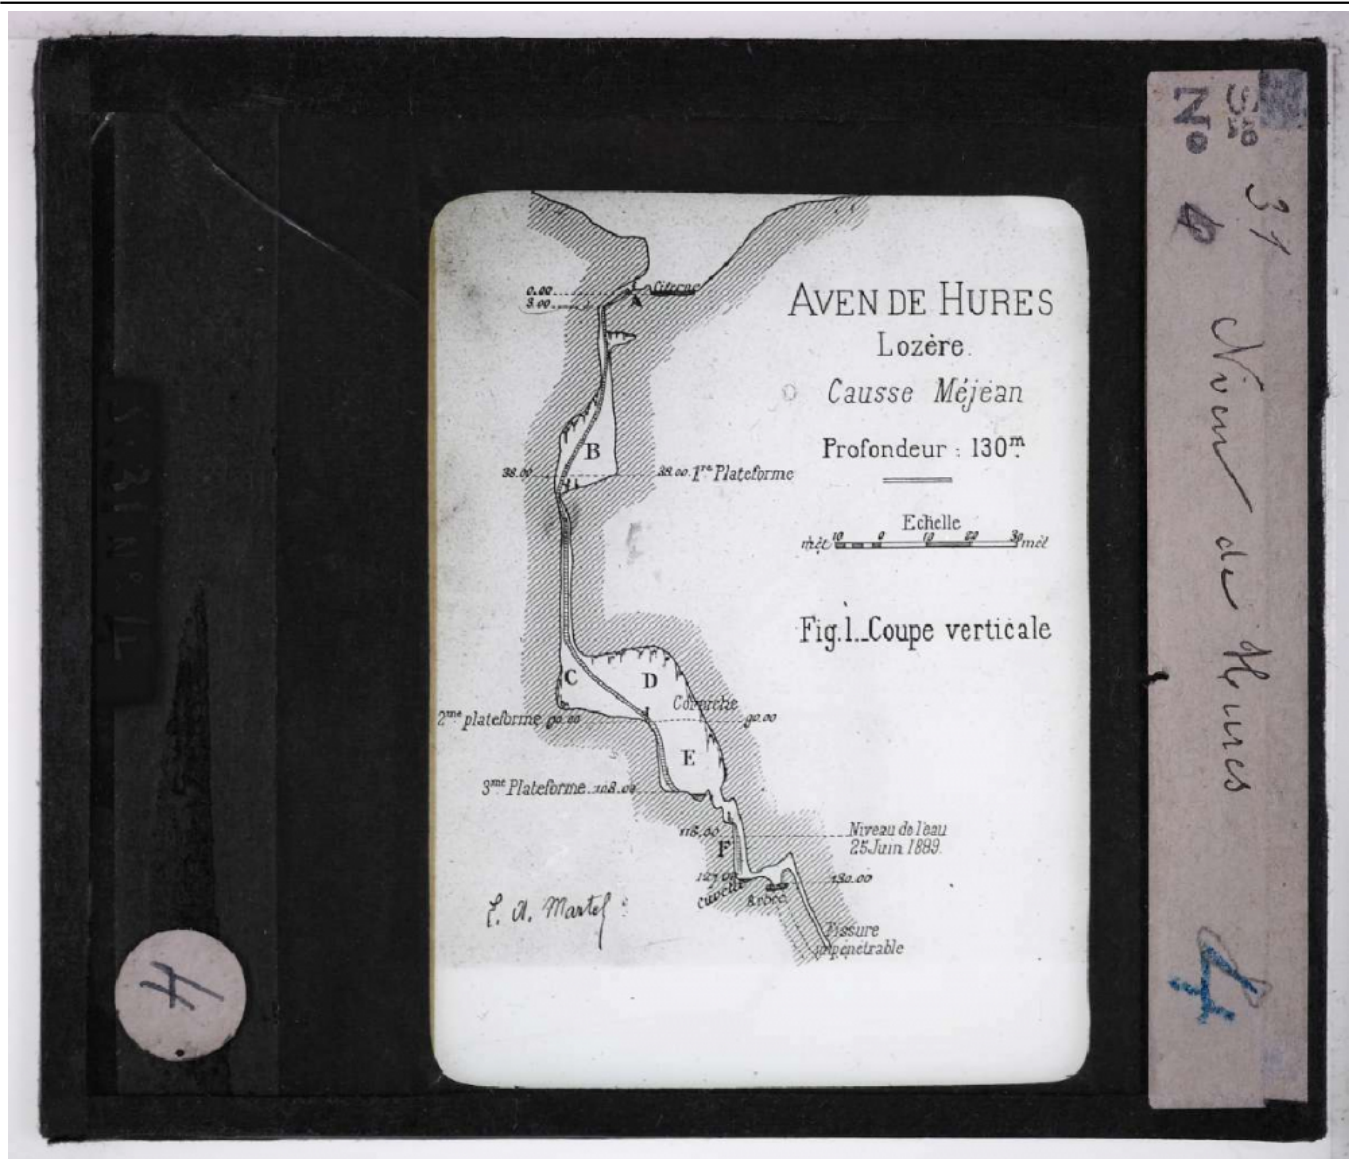 AVEN DE HURES
Lozère.
Causse Méjean
Profondeur : 130m.
Echelle
mèt 10 0 10 20 30 mèt
Fig.1._Coupe verticale
0.00
3.00
Citerne
A
B
38.00
38.00. 1re Plateforme
C
D
Corniche
2me plateforme 90.00
90.00
E
3me Plateforme 108.00
118.00
F
Niveau de l'eau
25 Juin 1889.
127.00
130.00
Cuvette
Fissure
impénétrable
E. A. Martel
Sie 31
No 4
de Hures
4
4